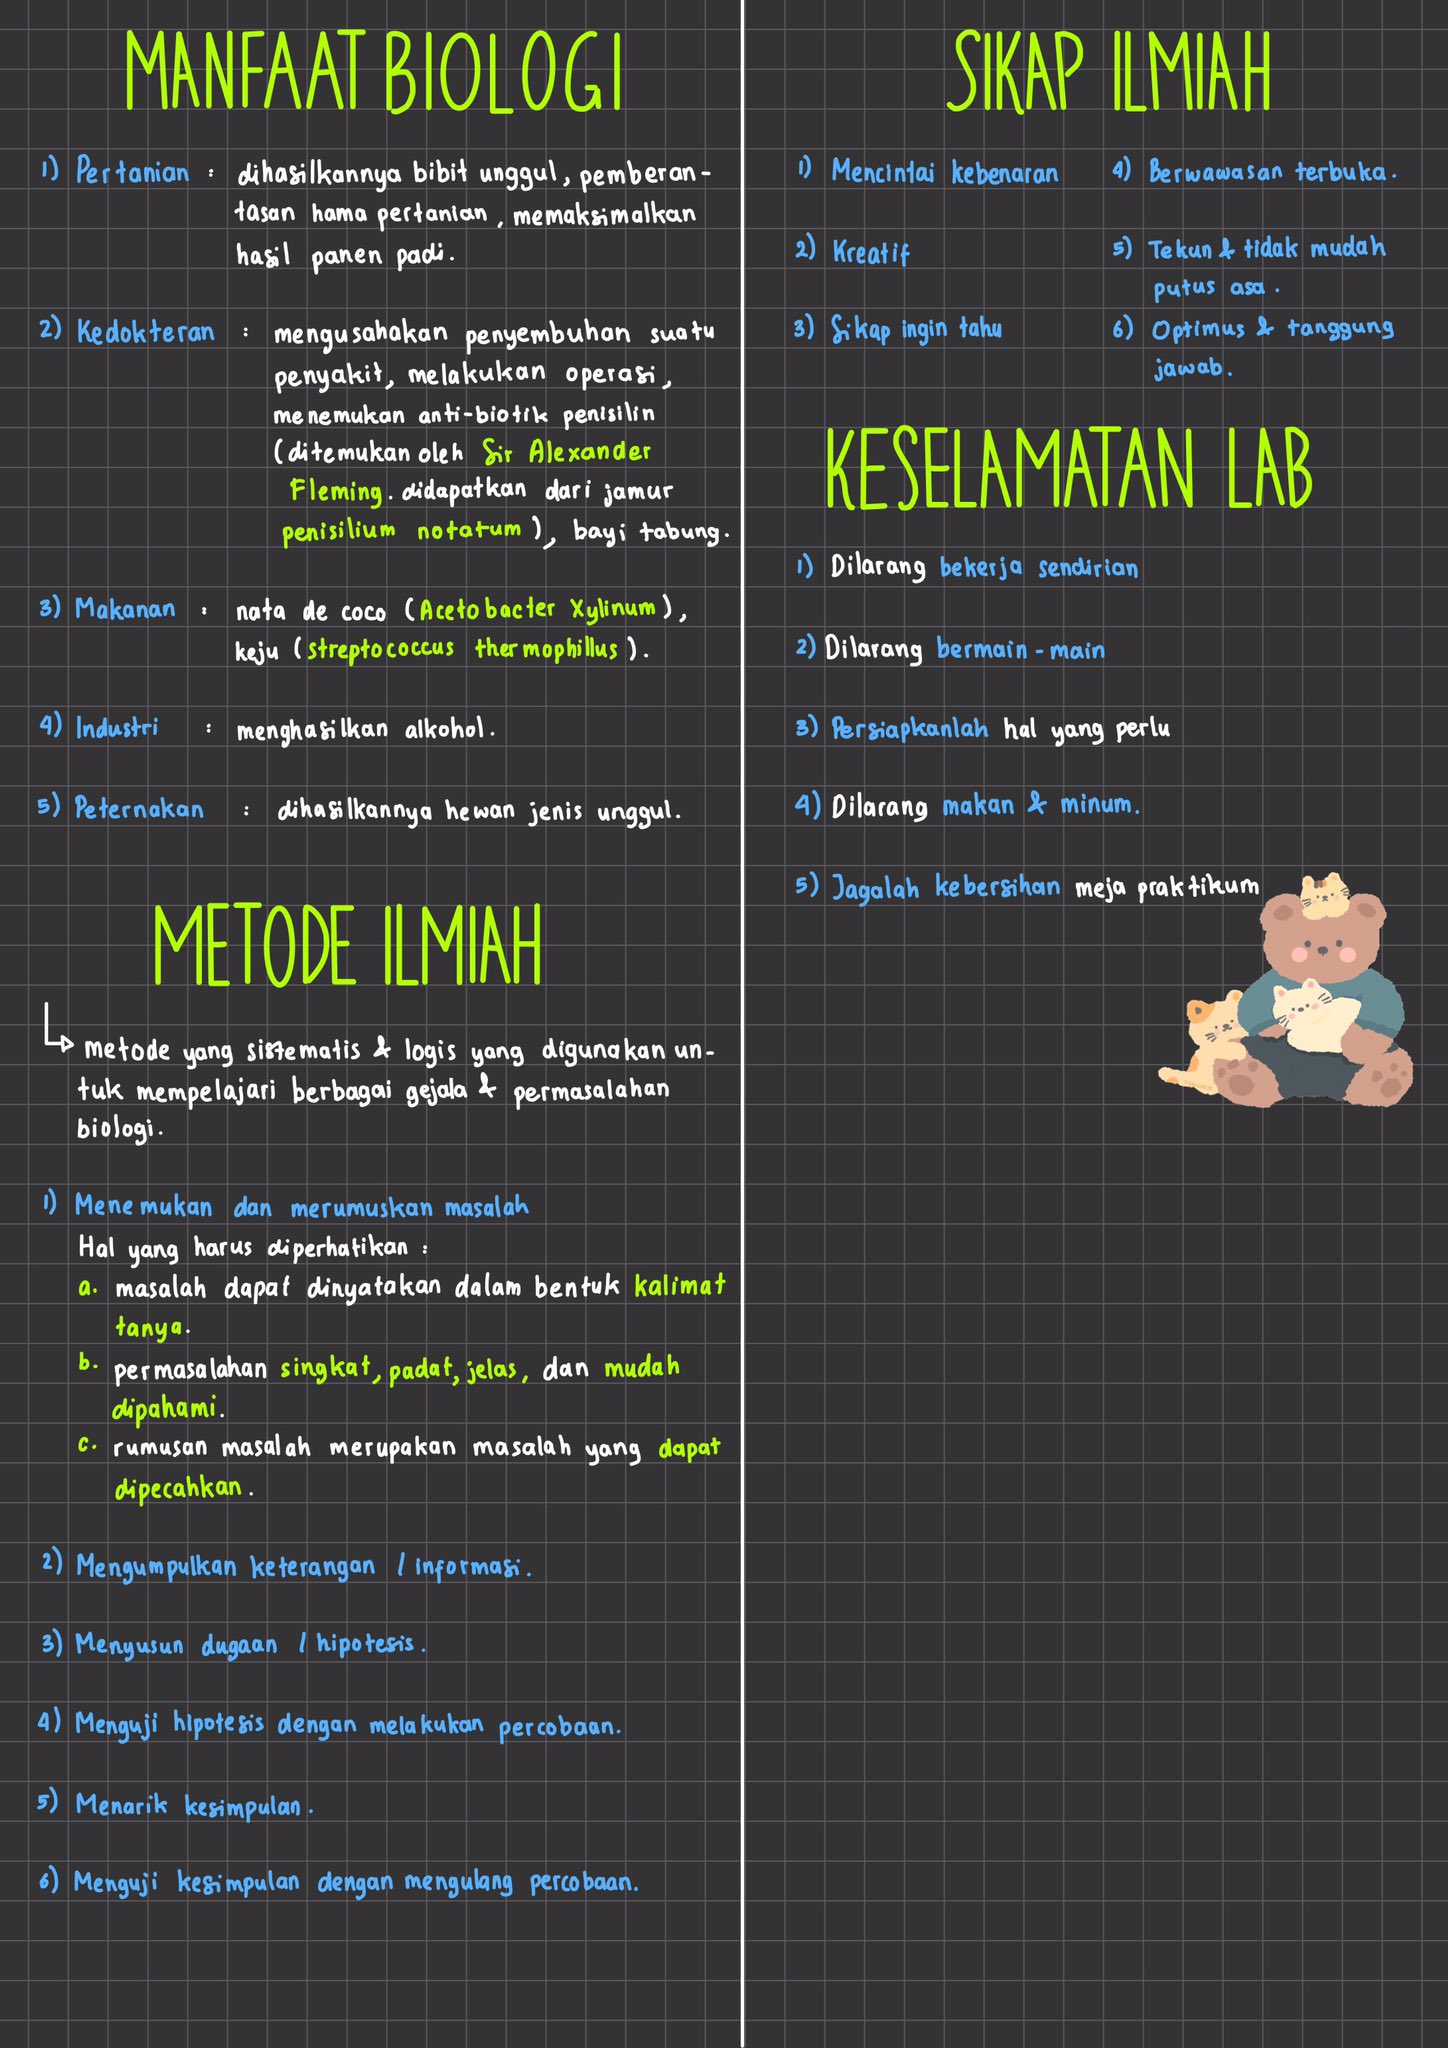 MANFAAT BIOLOGI
1) Pertanian : dihasilkannya bibit unggul, pemberan-
tasan hama pertanian, memaksimalkan
hasil panen padi.
2) Kedokteran : mengusahakan penyembuhan suatu
penyakit, melakukan operasi,
menemukan anti-biotik penisilin
(ditemukan oleh Sir Alexander
Fleming. didapatkan dari jamur
penisilium notatum), bayi tabung.
3) Makanan : nata de coco (Acetobacter Xylinum),
keju (streptococcus thermophillus).
4) Industri : menghasilkan alkohol.
5) Peternakan : dihasilkannya hewan jenis unggul.
METODE ILMIAH
metode yang sistematis & logis yang digunakan un-
tuk mempelajari berbagai gejala & permasalahan
biologi.
1) Menemukan dan merumuskan masalah
Hal yang harus diperhatikan :
a. masalah dapat dinyatakan dalam bentuk kalimat
tanya.
b. permasalahan singkat, padat, jelas, dan mudah
dipahami.
c. rumusan masalah merupakan masalah yang dapat
dipecahkan.
2) Mengumpulkan keterangan / informasi.
3) Menyusun dugaan / hipotesis.
4) Menguji hipotesis dengan melakukan percobaan.
5) Menarik kesimpulan.
6) Menguji kesimpulan dengan mengulang percobaan.
SIKAP ILMIAH
1) Mencintai kebenaran
2) Kreatif
3) Sikap ingin tahu
4) Berwawasan terbuka.
5) Tekun & tidak mudah
putus asa.
6) Optimus & tanggung
jawab.
KESELAMATAN LAB
1) Dilarang bekerja sendirian
2) Dilarang bermain-main
3) Persiapkanlah hal yang perlu
4) Dilarang makan & minum.
5) Jagalah kebersihan meja praktikum